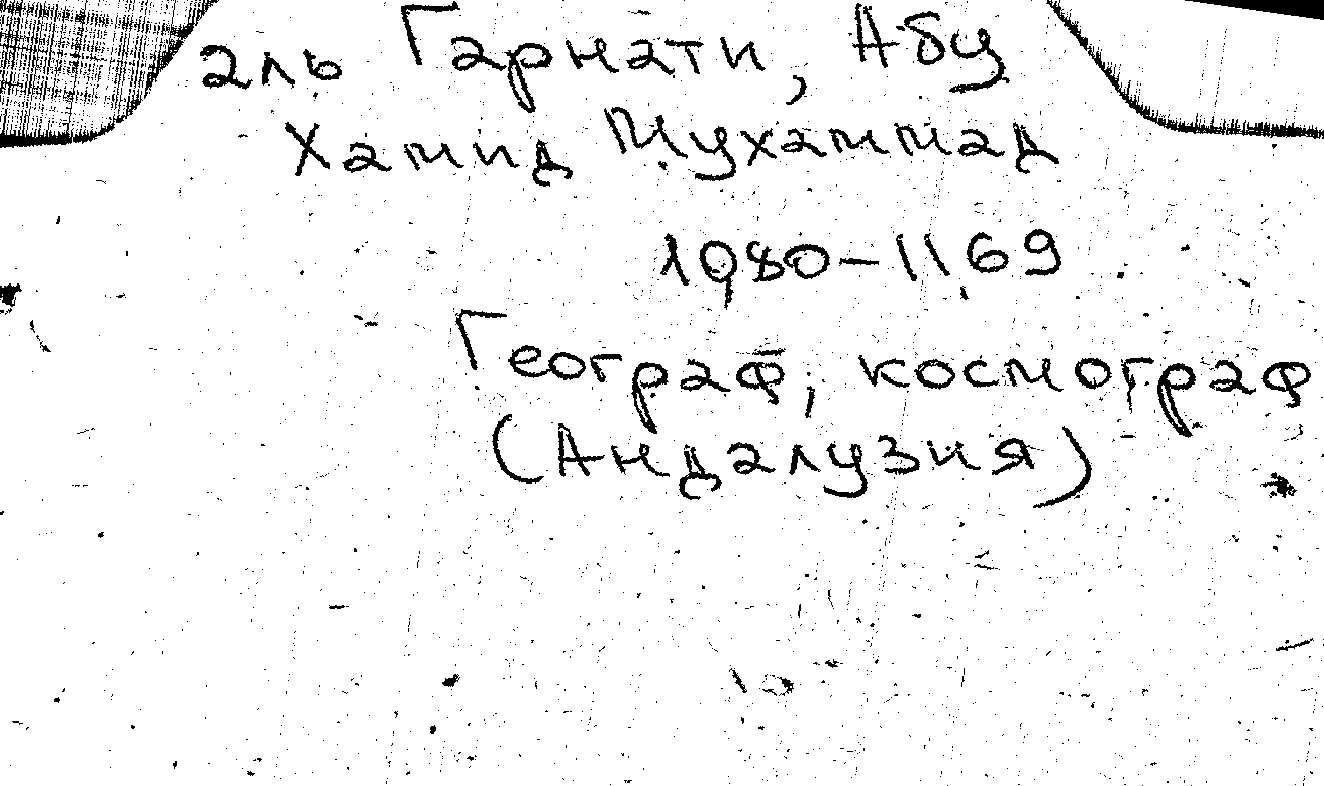 аль Гарнати, Абу
Хамид Мухаммад
1080-1169
Географ, космограф
(Андалузия)